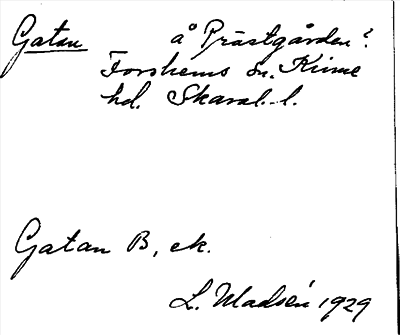 Gatan å Prästgården?
Forshems sn. Kinne
hd. Skarab. l.
Gatan B, ek.
L. Wadsén 1929